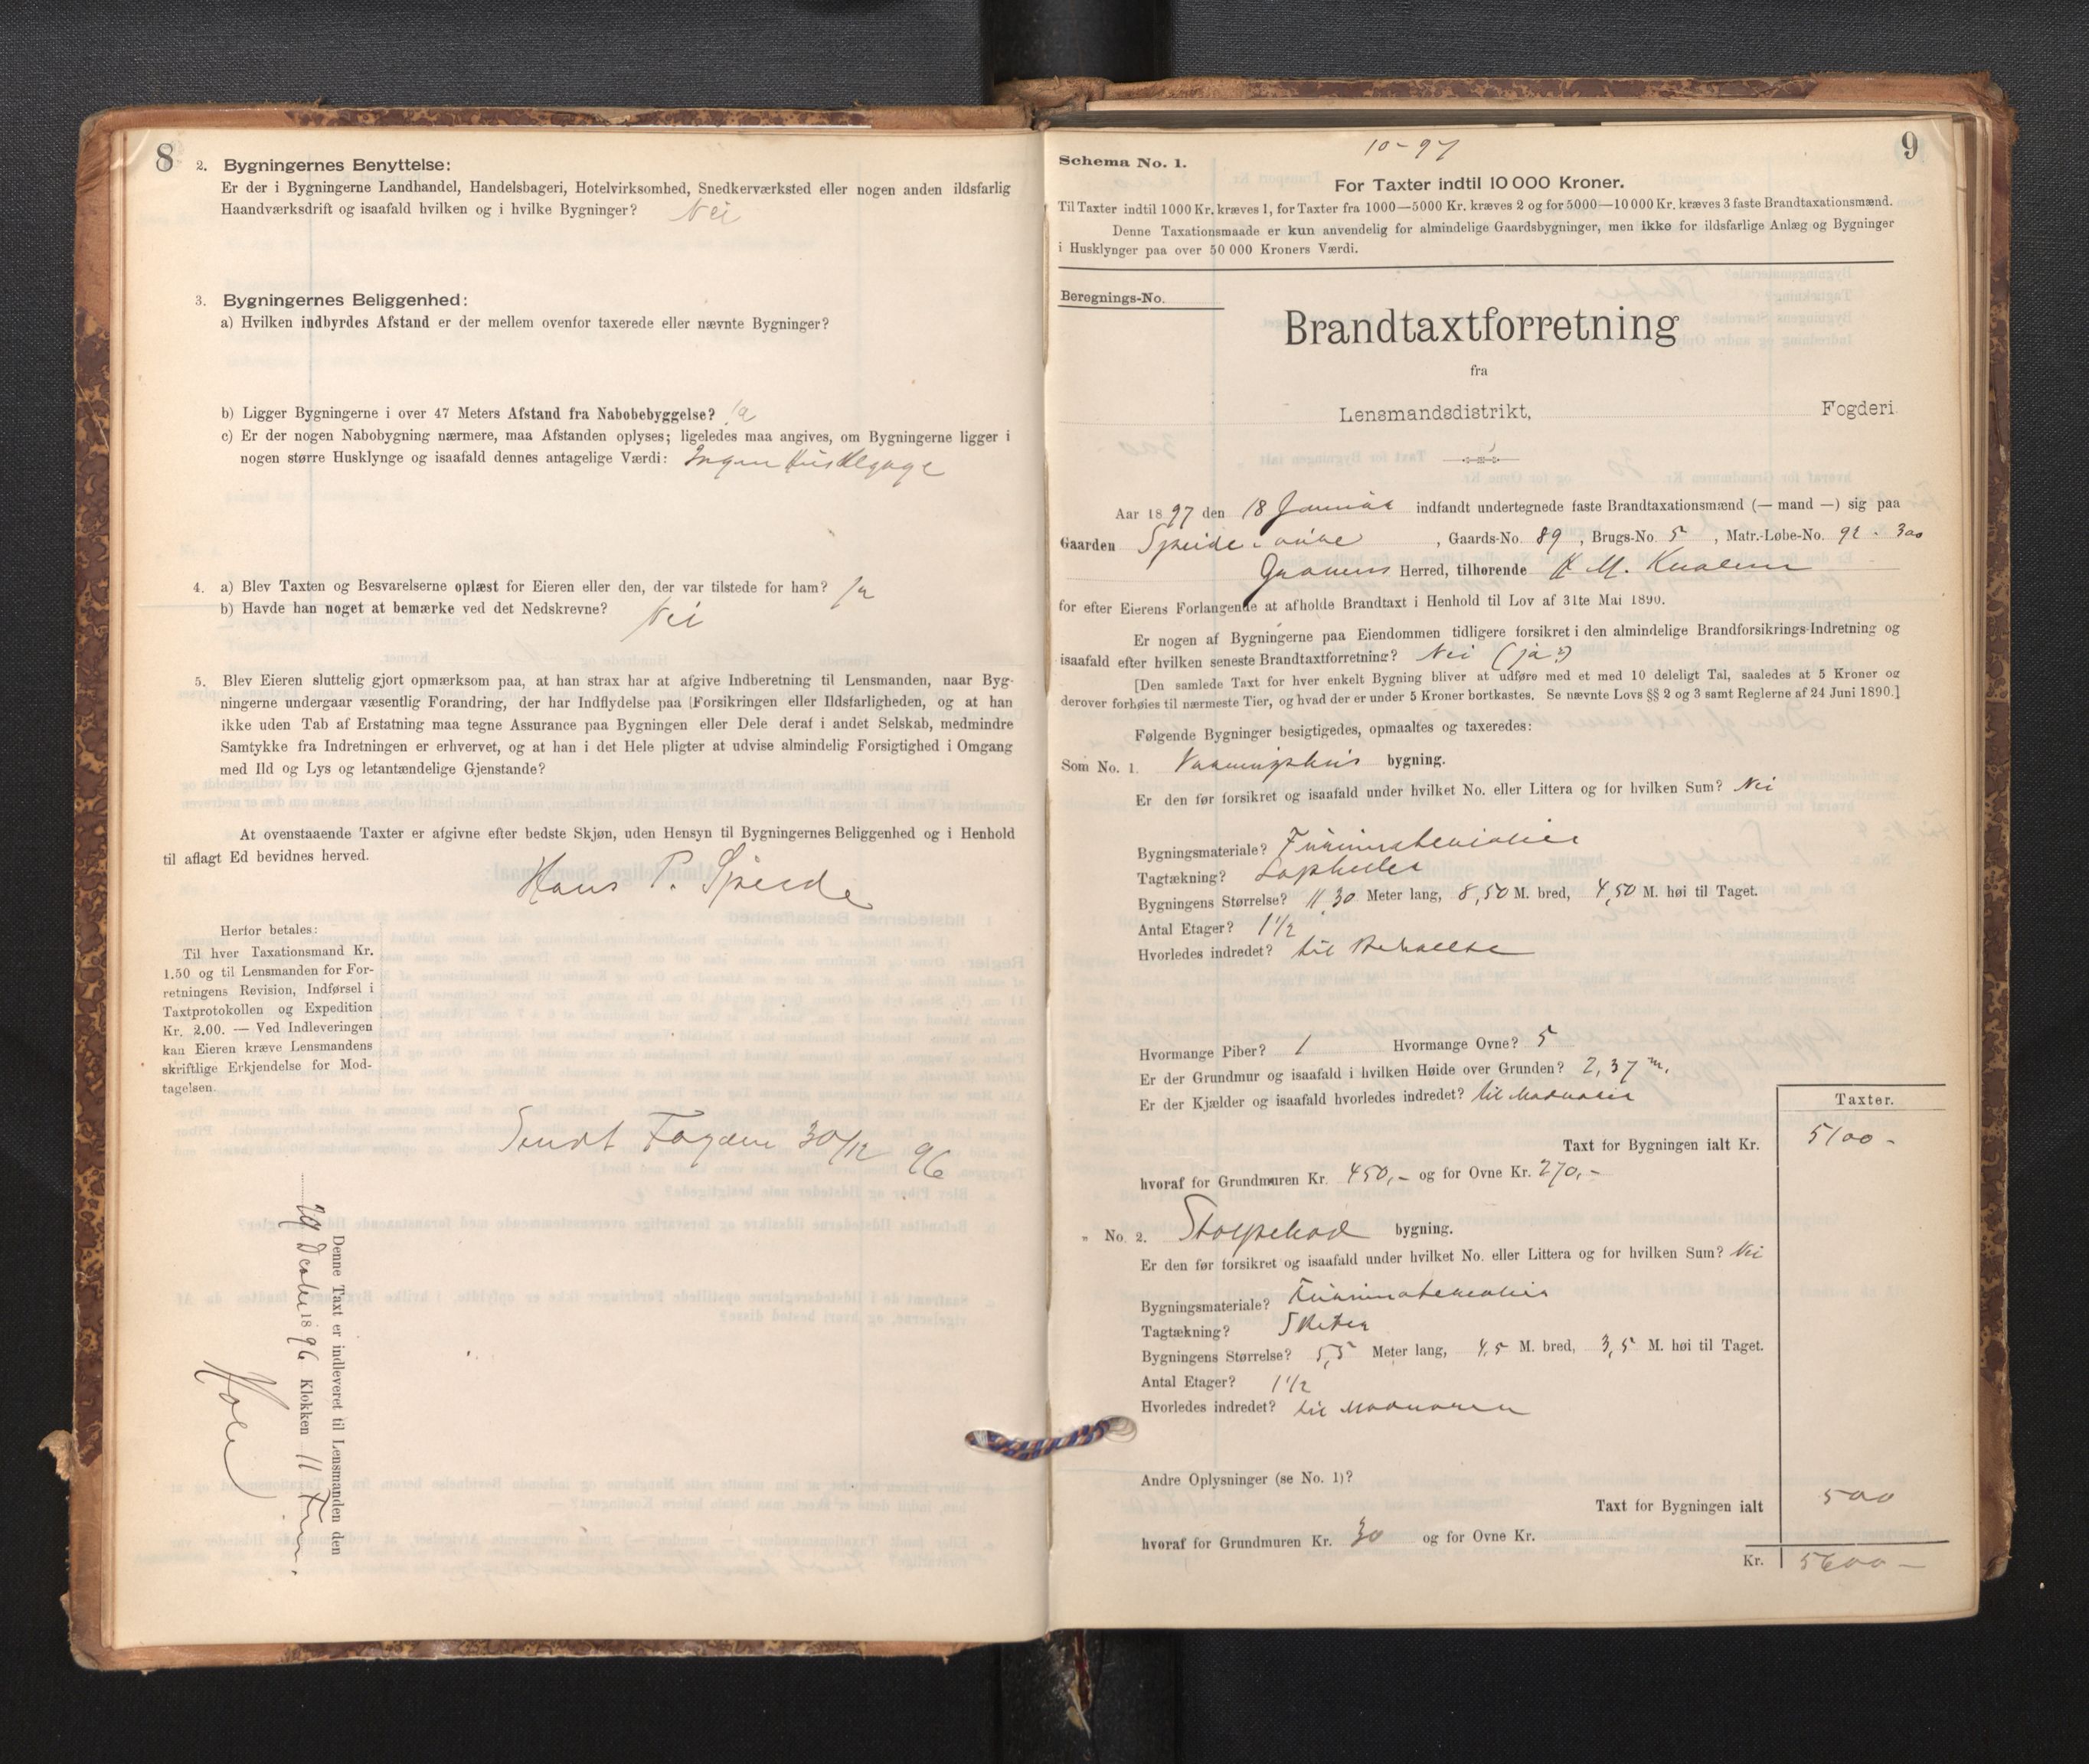 8
2. Bygningernes Benyttelse:
Er der i Bygningerne Landhandel, Handelsbageri, Hotelvirksomhed, Snedkerværksted eller nogen anden ildsfarlig
Haandværksdrift og isaafald hvilken og i hvilke Bygninger? Nei
3. Bygningernes Beliggenhed:
a) Hvilken indbyrdes Afstand er der mellem ovenfor taxerede eller nævnte Bygninger?
b) Ligger Bygningerne i over 47 Meters Afstand fra Nabobebyggelse? Ja
c) Er der nogen Nabobygning nærmere, maa Afstanden oplyses; ligeledes maa angives, om Bygningerne ligger i
nogen større Husklynge og isaafald dennes antagelige Værdi: Ingen
4. a) Blev Taxten og Besvarelserne oplæst for Eieren eller den, der var tilstede for ham? Ja
b) Havde han noget at bemærke ved det Nedskrevne? Nei
5. Blev Eieren sluttelig gjort opmærksom paa, at han strax har at afgive Indberetning til Lensmanden, naar Byg-
ningerne undergaar væsentlig Forandring, der har Indflydelse paa Forsikringen eller Ildsfarligheden, og at han
ikke uden Tab af Erstatning maa tegne Assurance paa Bygningen eller Dele deraf i andet Selskab, medmindre
Samtykke fra Indretningen er erhvervet, og at han i det Hele pligter at udvise almindelig Forsigtighed i Omgang
med Ild og Lys og letantændelige Gjenstande?
At ovenstaaende Taxter er afgivne efter bedste Skjøn, uden Hensyn til Bygningernes Beliggenhed og i Henhold
til aflagt Ed bevidnes herved.
Hans P. Speide
Herfor betales:
Til hver Taxationsmand Kr.
1.50 og til Lensmanden for For-
retningens Revision, Indførsel i
Taxtprotokollen og Expedition
Kr. 2.00. — Ved Indleveringen
kan Eieren kræve Lensmandens
skriftlige Erkjendelse for Mod-
tagelsen.
Sendt Fogden 30/12 96
Denne Taxt er indleveret til Lensmanden den
29 Decbr 1896 Klokken 11 Fm.
9
10-97
Schema No. 1.
For Taxter indtil 10 000 Kroner.
Til Taxter indtil 1000 Kr. kræves 1, for Taxter fra 1000—5000 Kr. kræves 2 og for 5000—10 000 Kr. kræves 3 faste Brandtaxationsmænd.
Denne Taxationsmaade er kun anvendelig for almindelige Gaardsbygninger, men ikke for ildsfarlige Anlæg og Bygninger
i Husklynger paa over 50 000 Kroners Værdi.
Beregnings-No.
Brandtaxtforretning
fra
Lensmandsdistrikt, Fogderi.
Aar 1897 den 18 Januar indfandt undertegnede faste Brandtaxationsmænd (— mand —) sig paa
Gaarden Speide , Gaards-No. 89 , Brugs-No. 5 , Matr.-Løbe-No. 92 . 300
Herred, tilhørende K M.
for efter Eierens Forlangende at afholde Brandtaxt i Henhold til Lov af 31te Mai 1890.
Er nogen af Bygningerne paa Eiendommen tidligere forsikret i den almindelige Brandforsikrings-Indretning og
isaafald efter hvilken seneste Brandtaxtforretning? Nei (ja?)
[Den samlede Taxt for hver enkelt Bygning bliver at udføre med et med 10 deleligt Tal, saaledes at 5 Kroner og
derover forhøies til nærmeste Tier, og hvad der er under 5 Kroner bortkastes. Se nævnte Lovs §§ 2 og 3 samt Reglerne af 24 Juni 1890.]
Følgende Bygninger besigtigedes, opmaaltes og taxeredes:
Som No. 1. Vaaningshus bygning.
Er den før forsikret og isaafald under hvilket No. eller Littera og for hvilken Sum? Nei
Bygningsmateriale? Furumaterialier
Tagtækning? Lapheller
Bygningens Størrelse? 11,30 Meter lang, 8,50 M. bred, 4,50 M. høi til Taget.
Antal Etager? 1 1/2
Hvorledes indredet? til Beboelse
Hvormange Piber? 1 Hvormange Ovne? 5
Er der Grundmur og isaafald i hvilken Høide over Grunden? 2,37 m.
Er der Kjælder og isaafald hvorledes indredet? til Madvarer
Taxter.
Taxt for Bygningen ialt Kr. 5100 -
hvoraf for Grundmuren Kr. 450,- og for Ovne Kr. 270,-
" No. 2. Stolpebod bygning.
Er den før forsikret og isaafald under hvilket No. eller Littera og for hvilken Sum? Nei
Bygningsmateriale? Furumaterialier
Tagtækning? Skifer
Bygningens Størrelse? 5,5 Meter lang, 4,5 M. bred, 3,5 M. høi til Taget.
Antal Etager? 1 1/2
Hvorledes indredet? til Madvarer
Andre Oplysninger (se No. 1)?
Taxt for Bygningen ialt 500
hvoraf for Grundmuren Kr. 30 og for Ovne Kr.
Kr. 5600 -